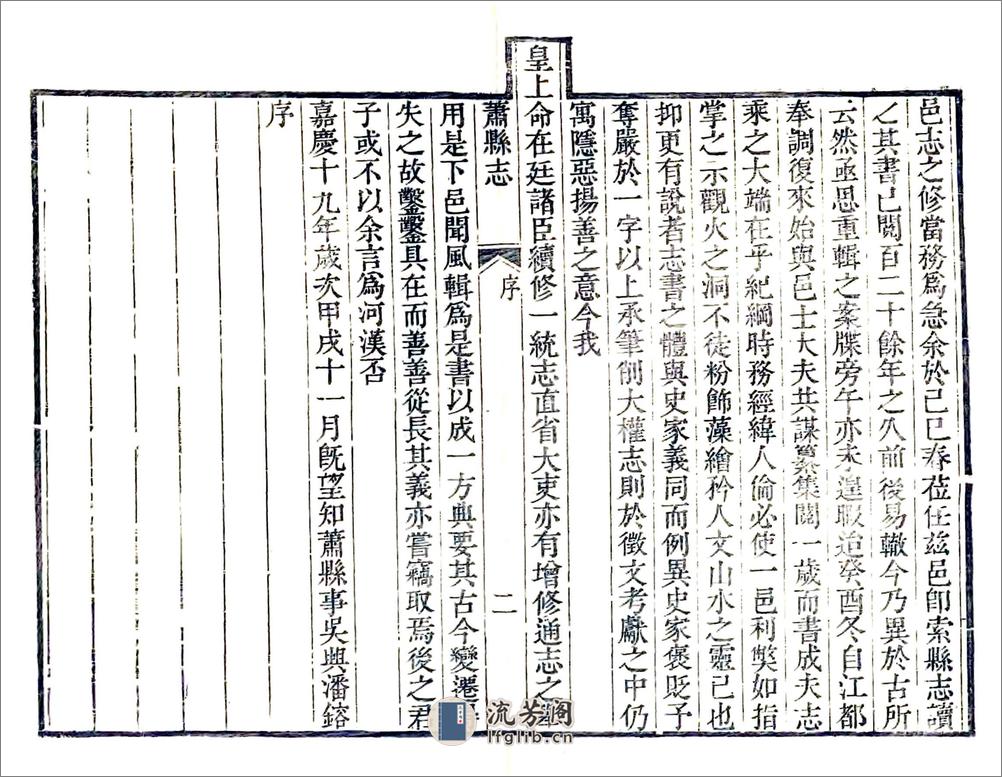 邑志之修當務爲急余於己巳春莅任茲邑卽索縣志讀
之其書已閱百二十餘年之久前後易轍今乃異於古所
云然亟思重輯之案牒旁午亦未遑暇迨癸酉冬自江都
奉調復來始與邑士大夫共謀纂集閱一歲而書成夫志
乘之大端在乎紀綱時務經緯人倫必使一邑利獘如指
掌之示觀火之洞不徒粉飾藻繪矜人文山水之靈已也
抑更有說者志書之體與史家義同而例異史家褒貶予
奪嚴於一字以上承筆削大權志則於徵文考獻之中仍
寓隱惡揚善之意今我
皇上命在廷諸臣續修一統志直省大吏亦有增修通志之
蕭縣志
序
二
用是下邑聞風輯爲是書以成一方典要其古今變遷
失之故鑿鑿具在而善善從長其義亦嘗竊取焉後之君
子或不以余言爲河漢否
嘉慶十九年歲次甲戌十一月旣望知蕭縣事吳興潘鎔
序
流芳閣
lfglib.cn